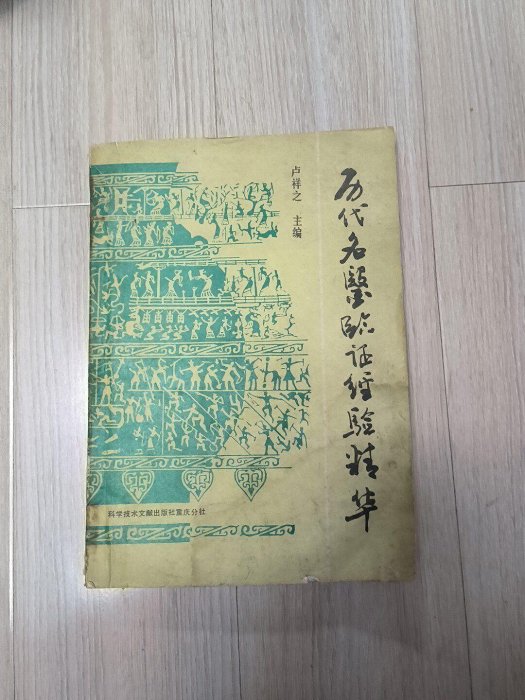 历代名醫临证经验精华
卢祥之 主编
科学技术文献出版社重庆分社